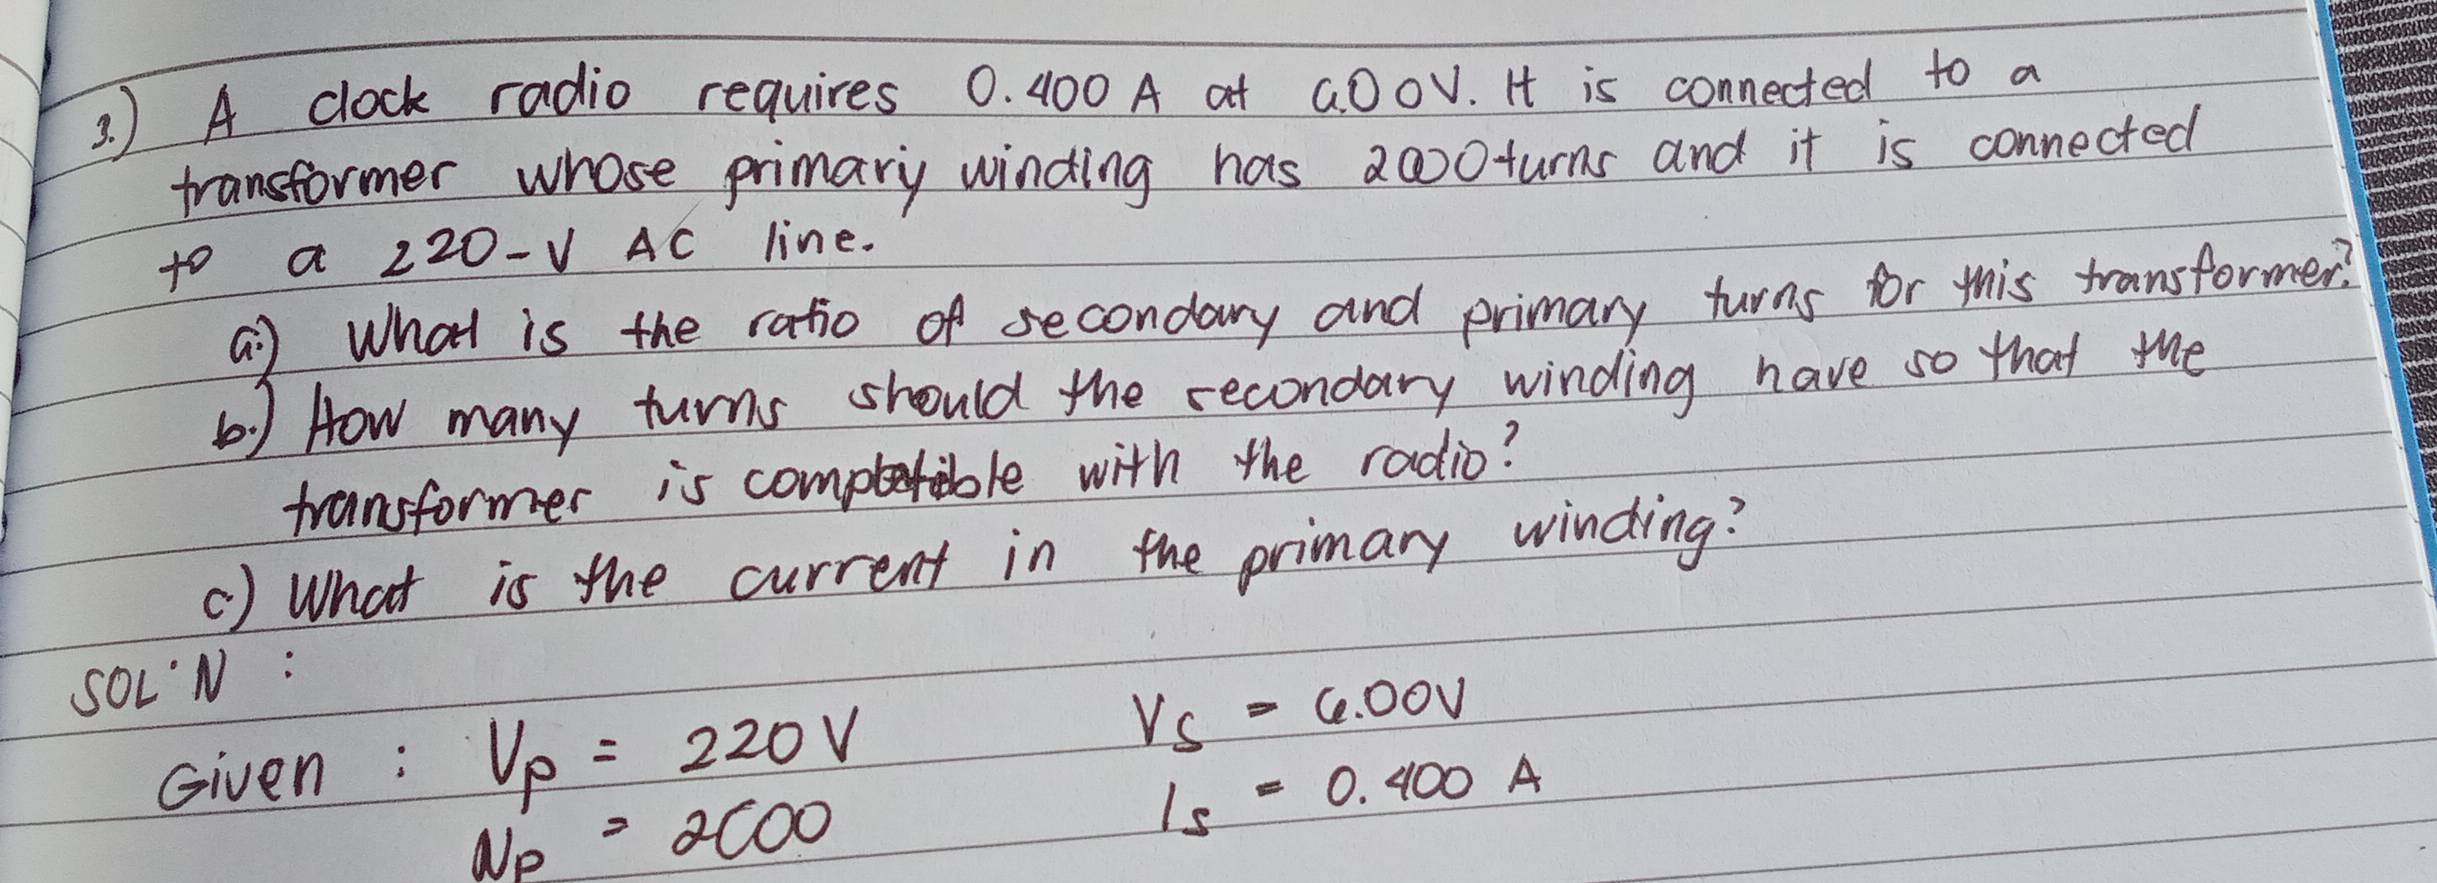 3.) A clock radio requires 0.400 A at 6.00V. It is connected to a
transformer whose primary winding has 2000 turns and it is connected
to a 220-V AC line.
a.) What is the ratio of secondary and primary turns for this transformer?
b.) How many turns should the secondary winding have so that the
transformer is compatible with the radio?
c.) What is the current in the primary winding?
SOL'N :
Given : Vp = 220 V Vs = 6.00V
Np = 2000 Is = 0.400 A